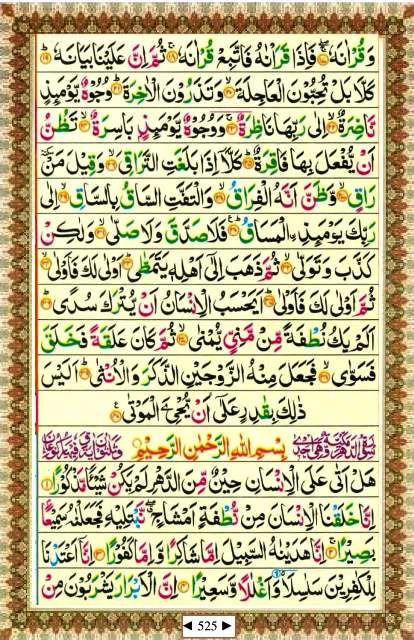 وَقُرْاٰنَهٗ ۝١٧ فَاِذَا قَرَاْنٰهُ فَاتَّبِعْ قُرْاٰنَهٗ ۝١٨ ثُمَّ اِنَّ عَلَيْنَا بَيَانَهٗ ۝١٩
كَلَّا بَلْ تُحِبُّوْنَ الْعَاجِلَةَ ۝٢٠ وَتَذَرُوْنَ الْاٰخِرَةَ ۝٢١ وُجُوْهٌ يَّوْمَئِذٍ
نَّاضِرَةٌ ۝٢٢ اِلٰى رَبِّهَا نَاظِرَةٌ ۝٢٣ وَوُجُوْهٌ يَّوْمَئِذٍ بَاسِرَةٌ ۝٢٤ تَظُنُّ
اَنْ يُّفْعَلَ بِهَا فَاقِرَةٌ ۝٢٥ كَلَّا اِذَا بَلَغَتِ التَّرَاقِيَ ۝٢٦ وَقِيْلَ مَنْ
رَاقٍ ۝٢٧ وَّظَنَّ اَنَّهُ الْفِرَاقُ ۝٢٨ وَالْتَفَّتِ السَّاقُ بِالسَّاقِ ۝٢٩ اِلٰى
رَبِّكَ يَوْمَئِذِ ۨالْمَسَاقُ ۝٣٠ فَلَا صَدَّقَ وَلَا صَلّٰى ۝٣١ وَلٰكِنْ
كَذَّبَ وَتَوَلّٰى ۝٣٢ ثُمَّ ذَهَبَ اِلٰٓى اَهْلِهٖ يَتَمَطّٰى ۝٣٣ اَوْلٰى لَكَ فَاَوْلٰى ۝٣٤
ثُمَّ اَوْلٰى لَكَ فَاَوْلٰى ۝٣٥ اَيَحْسَبُ الْاِنْسَانُ اَنْ يُّتْرَكَ سُدًى ۝٣٦
اَلَمْ يَكُ نُطْفَةً مِّنْ مَّنِيٍّ يُّمْنٰى ۝٣٧ ثُمَّ كَانَ عَلَقَةً فَخَلَقَ
فَسَوّٰى ۝٣٨ فَجَعَلَ مِنْهُ الزَّوْجَيْنِ الذَّكَرَ وَالْاُنْثٰى ۝٣٩ اَلَيْسَ
ذٰلِكَ بِقٰدِرٍ عَلٰٓى اَنْ يُّحْيِۦَ الْمَوْتٰى ۝٤٠
بِسْمِ اللّٰهِ الرَّحْمٰنِ الرَّحِيْمِ
هَلْ اَتٰى عَلَى الْاِنْسَانِ حِيْنٌ مِّنَ الدَّهْرِ لَمْ يَكُنْ شَيْـًٔا مَّذْكُوْرًا ۝١
اِنَّا خَلَقْنَا الْاِنْسَانَ مِنْ نُّطْفَةٍ اَمْشَاجٍ نَّبْتَلِيْهِ فَجَعَلْنٰهُ سَمِيْعًۢا
بَصِيْرًا ۝٢ اِنَّا هَدَيْنٰهُ السَّبِيْلَ اِمَّا شَاكِرًا وَّاِمَّا كَفُوْرًا ۝٣ اِنَّآ اَعْتَدْنَا
لِلْكٰفِرِيْنَ سَلٰسِلَا۟ وَاَغْلٰلًا وَّسَعِيْرًا ۝٤ اِنَّ الْاَبْرَارَ يَشْرَبُوْنَ مِنْ
525